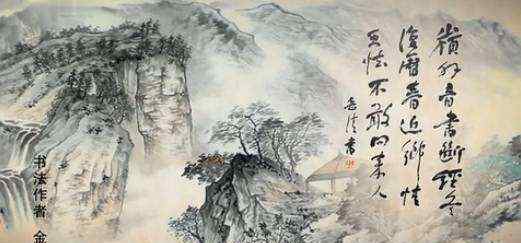 嶺外音書斷經冬
復歷春近鄉情
更怯不敢問來人
书法作者 金